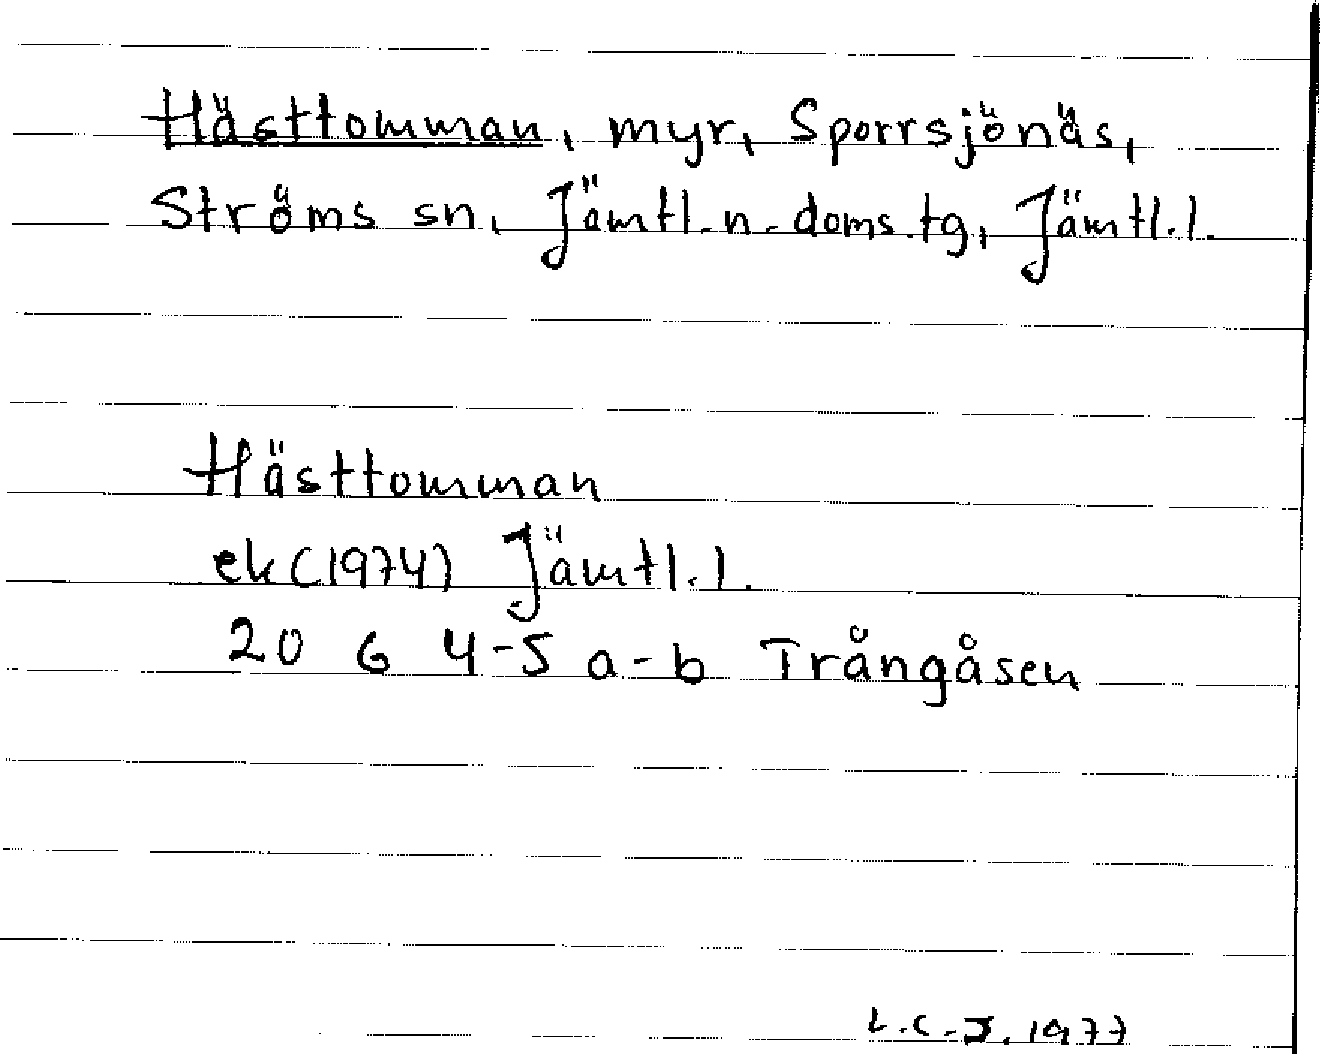 Hästtomman, myr, Sporrsjönäs,
Ströms sn, Jämtl. n. doms. tg, Jämtl. l.
Hästtomman
ek (1974) Jämtl. l.
20 G 4-5 a-b Trångåsen
L.C-J. 1977